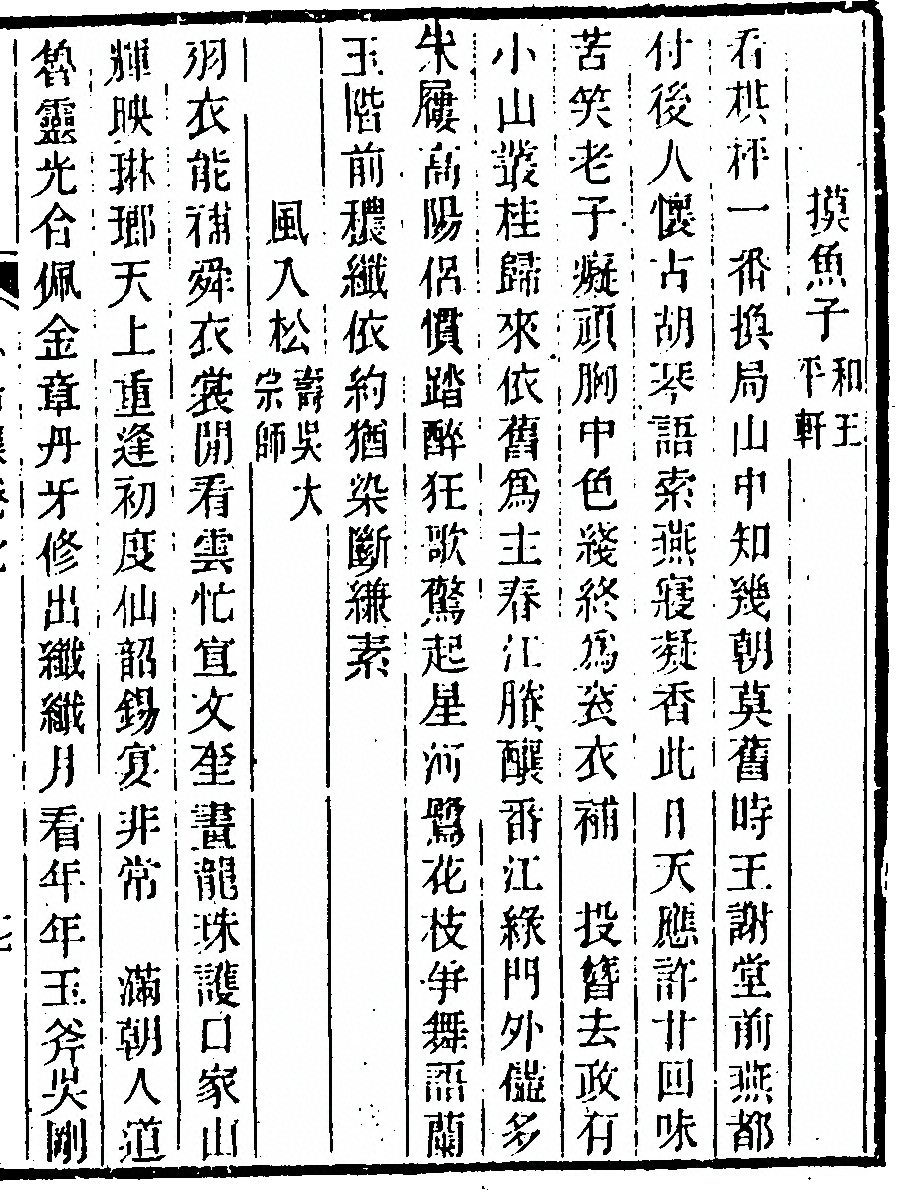 摸魚子和王平軒
看棋枰一番換局山中知幾朝莫舊時王謝堂前燕都
付後人懷古胡琴語索燕寢凝香此日天應許廿回味
苦笑老子癡頑胸中色綫終爲袞衣補　投簪去政有
小山叢桂歸來依舊爲主春江勝釀番江綠門外儘多
朱履高陽侶慣踏醉狂歌驚起星河鷺花枝爭舞語蘭
玉階前穠纖依約猶染斷縑素
風入松壽吳大宗師
羽衣能補舜衣裳閒看雲忙宣文坐晝龍珠護口家山
輝映琳瑯天上重逢初度仙韶錫宴非常　滿朝人道
魯靈光合佩金章丹牙修出纖纖月看年年玉斧吳剛